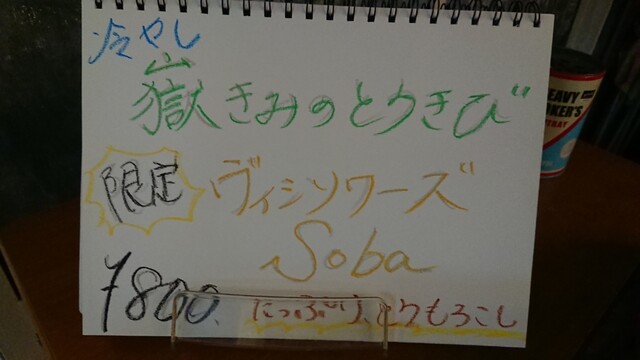 冷やし
嶽きみのとうきび
限定
ヴィシソワーズ
Soba
¥800.
たっぷり、とうもろこし